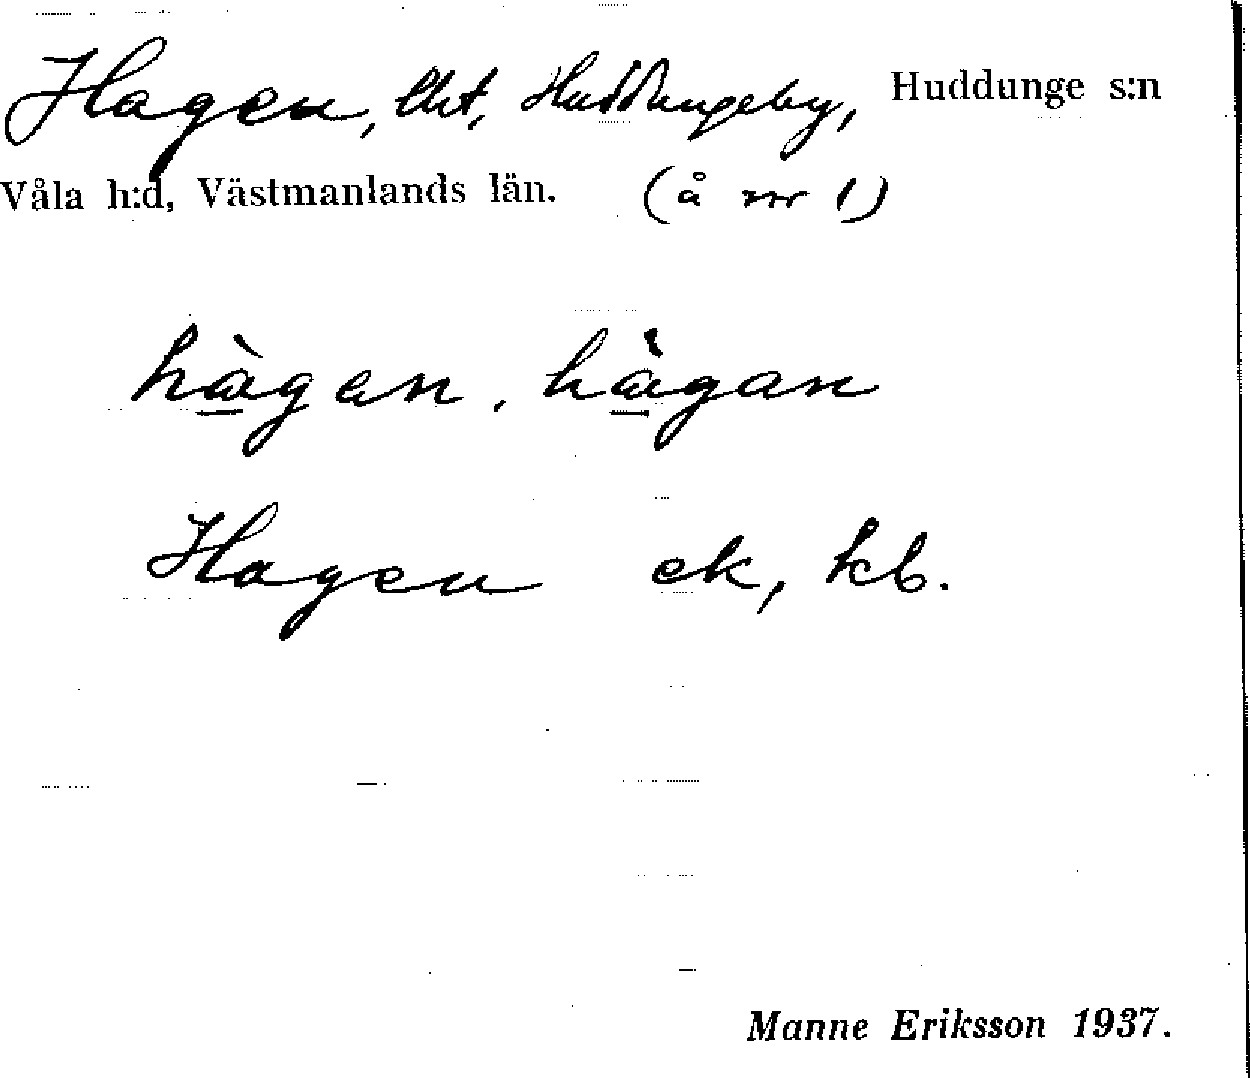 Hagen, lht, Huddungeby, Huddunge s:n
Våla h:d, Västmanlands län. (å nr 1)
hàgen, hàgan
Hagen ek, kb.
Manne Eriksson 1937.